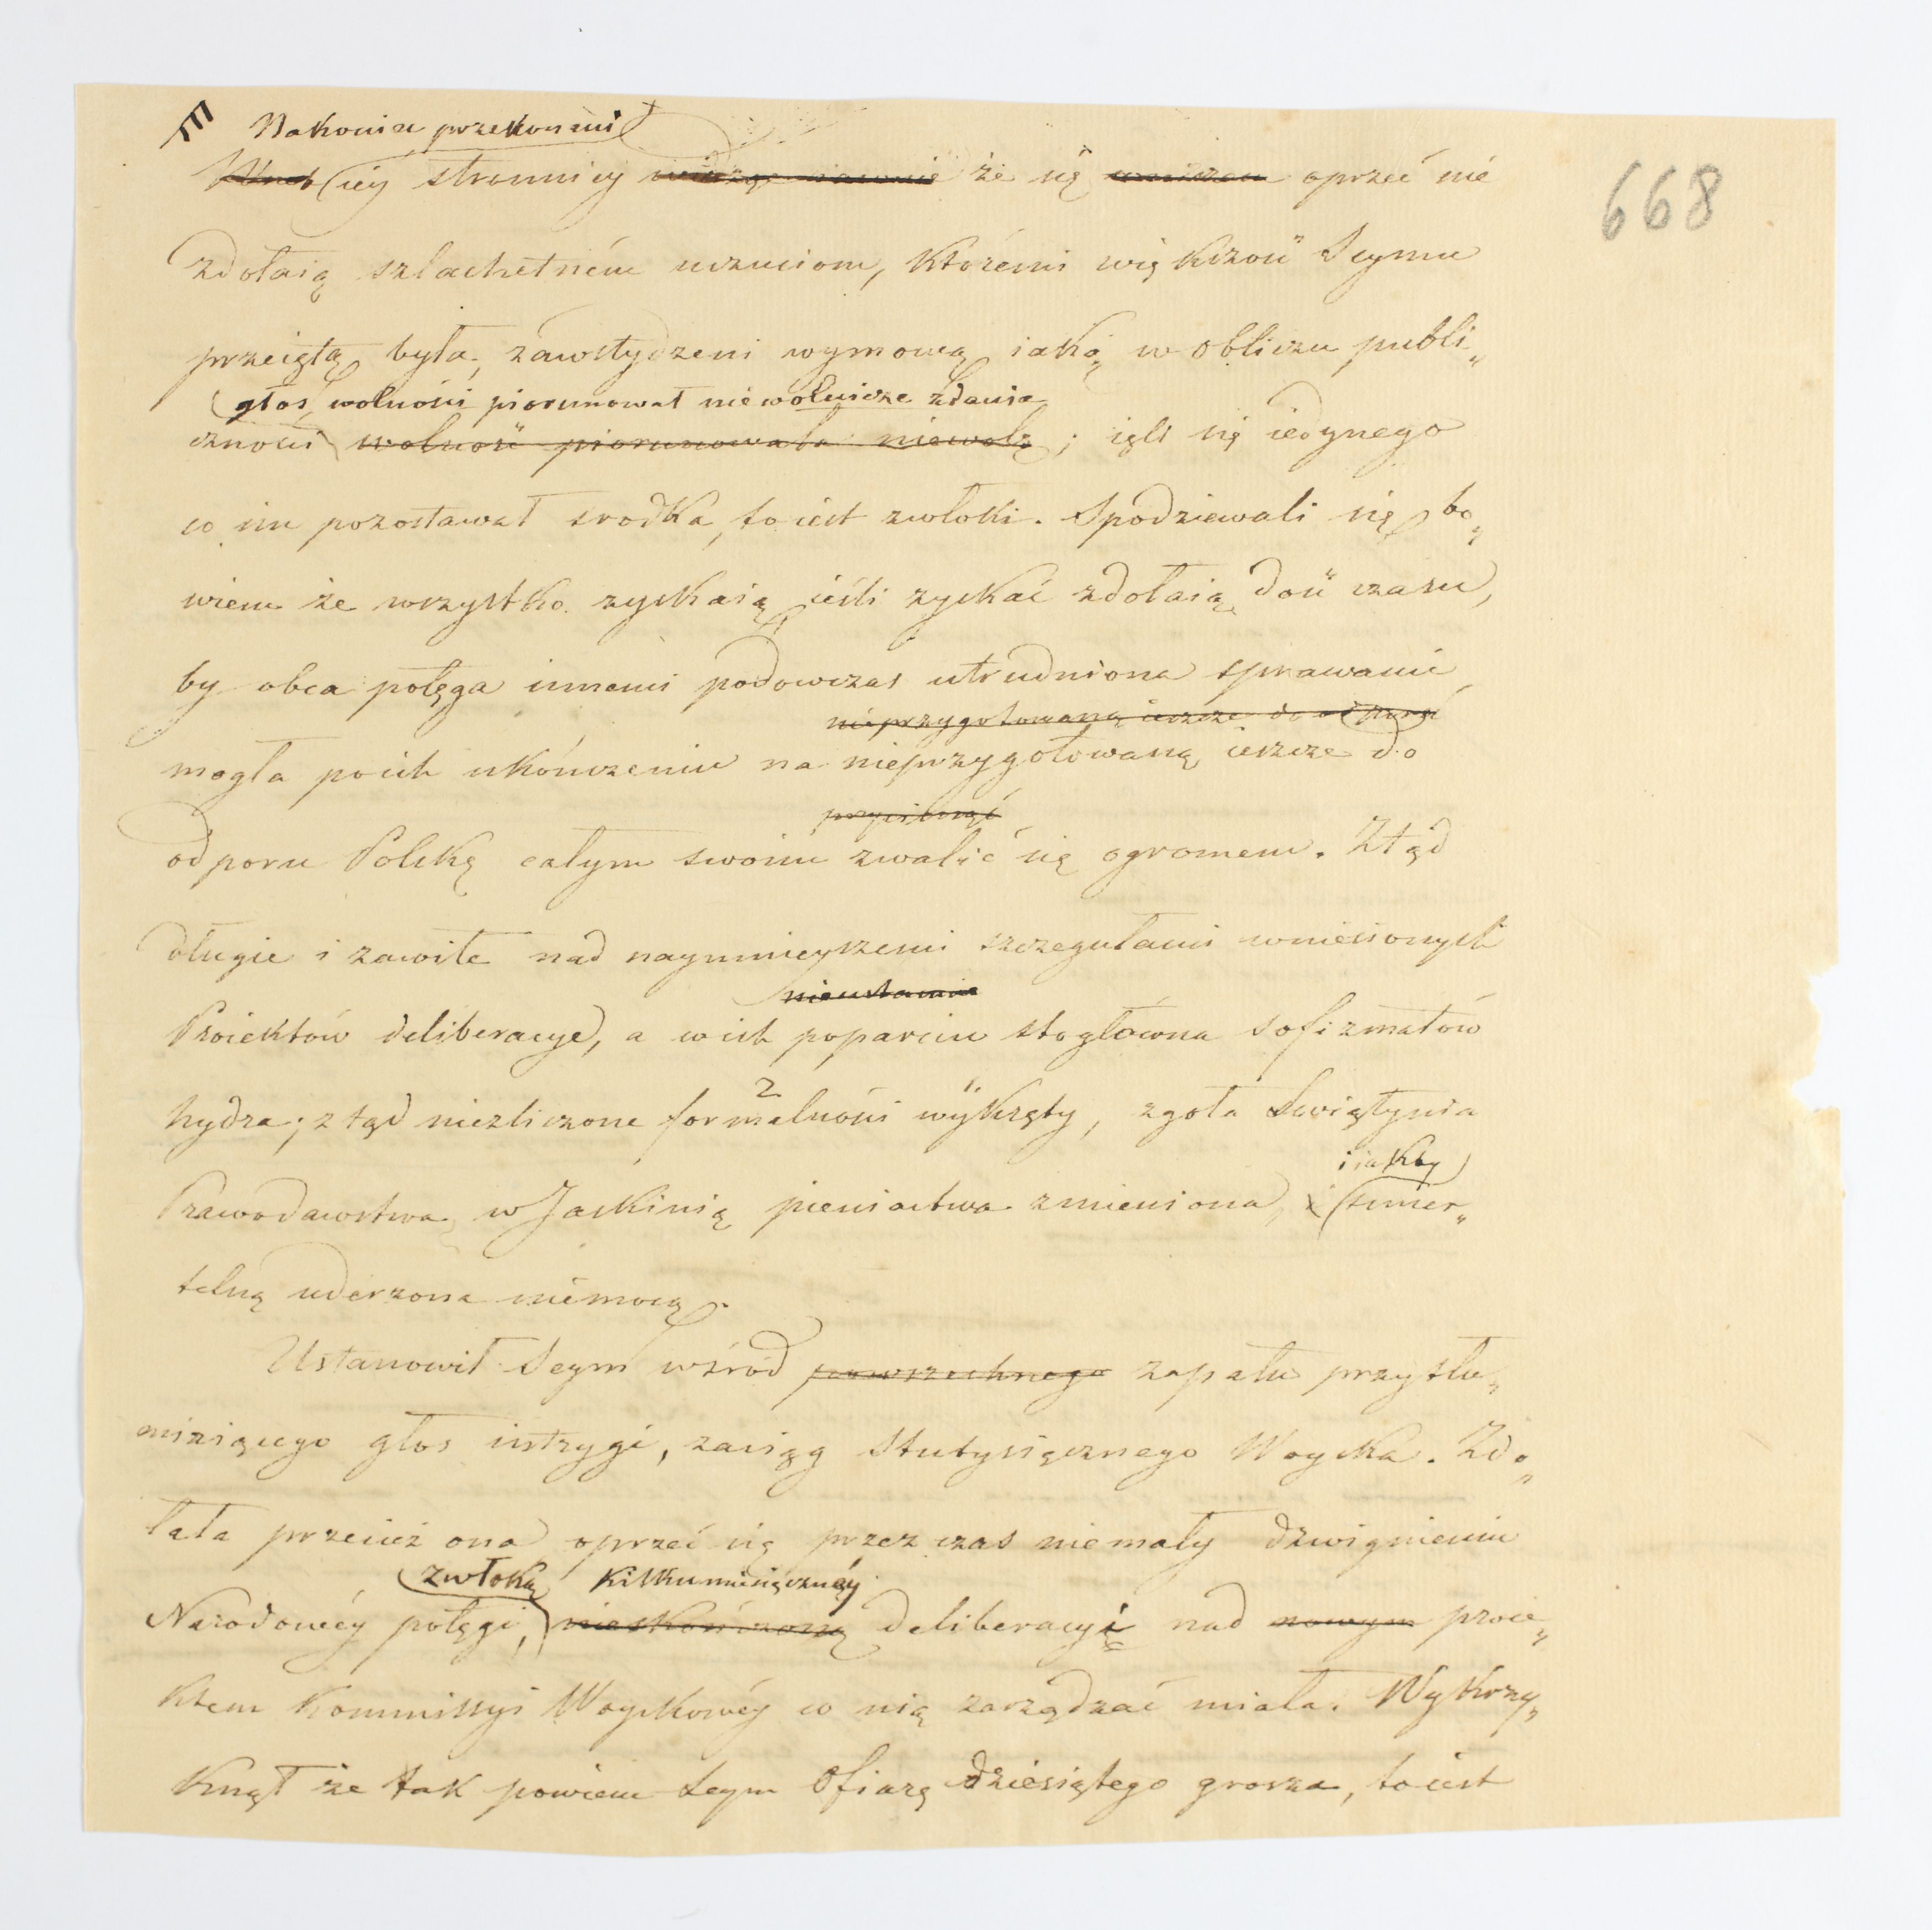 Nakoniec przekonani
ciż stronnicy że się oprzeć nié
zdołaią szlachetném uczuciom, któremi większość Seymu
przeiętą była, zawstydzeni wymową iaką w obliczu publi„
głos wolności piorunował niewolnicze zdania
czności wolność piorunowała niewolę; ięli się iedynego
co im pozostawał srodka, to iest zwłoki. Spodziewali się bo„
wiem że wszystko zyskaią ieśli zyskać zdołaią dość czasu,
by obca potęga innemi podowczas utrudniona sprawami
nieprzygotowaną ieszcze do odporu
mogła po ich ukończeniu na nieprzygotowaną ieszcze do
odporu Polskę całym swoim zwalić się ogromem. Ztąd
długie i zawiłe nad naymnieyszemi szczegułami wniesionych
nieustannie
Proiektów deliberacye, a w ich poparciu stogłówna sofizmatów
hydra; ztąd niezliczone formalności wykręty, zgoła Swiątynia
2 1.
i iakby
Prawodawstwa w Jaskinią pieniactwa zmieniona, i śmier„
telną uderzona niemocą.
Ustanowił Seym wśród powszechnego zapału przytłu„
miaiącego głos intrygi, zaciąg stutysięcznego Woyska. Zdo„
łała przecież ona oprzeć się przez czas niemały dzwignieniu
zwłoką kilkumiesięcznéy
Narodowéy potęgi, nieskończoną deliberacyi nad nowym proie„
ktem Kommissyi Woyskowéy co nią zarządzać miała. Wykrzy„
knął że tak powiem Seym Ofiarę dziesiątego grosza, to iest
668